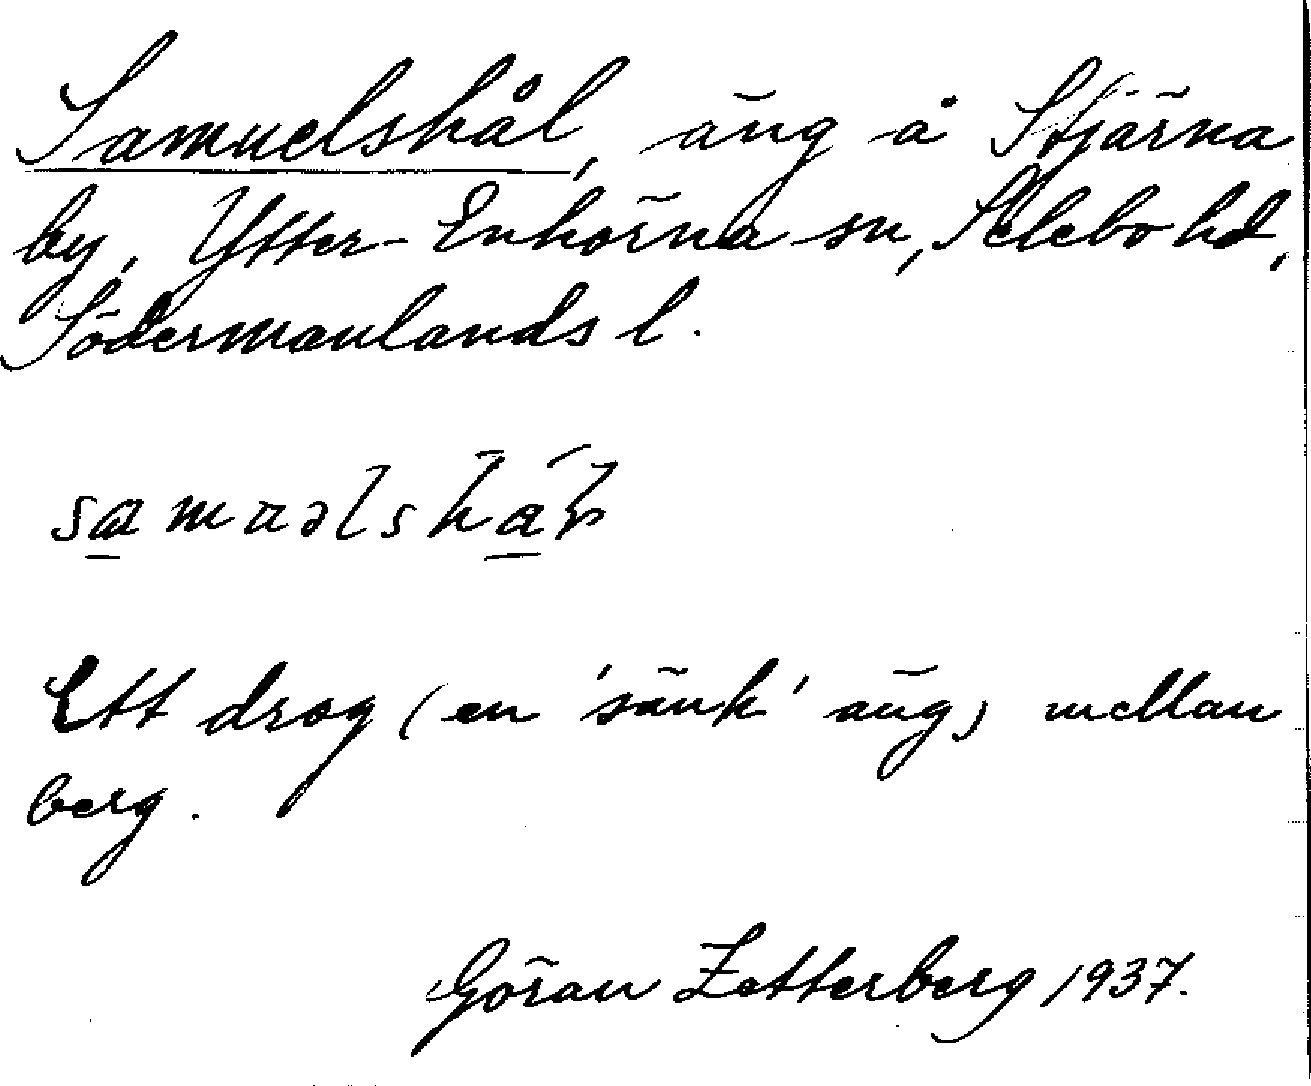 Samuelshål, äng å Stjärna
by, Ytter-Enhörna sn, Selebo hd,
Södermanlands l.
Ett drog (en 'sänk' äng) mellan
berg.
Göran Zetterberg 1937.